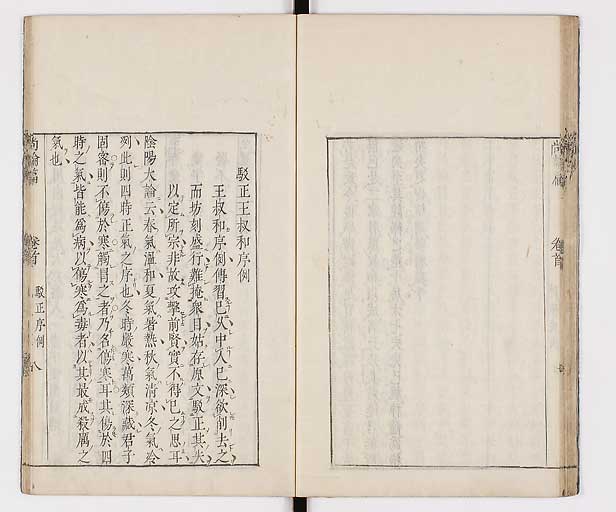 駁正王叔和序例
王叔和序例傳習已久中人已深欲削去之
而坊刻盛行難掩衆目姑存原文駁正其失
以定所宗非故攻擊前賢實不得已之思耳
陰陽大論云春氣溫和夏氣暑熱秋氣清凉冬氣冷
冽此則四時正氣之序也冬時嚴寒萬類深藏君子
固密則不傷於寒觸冒之者乃名傷寒耳其傷於四
時之氣皆能爲病以傷寒爲毒者以其最成殺厲之
氣也
尚論篇
卷首
駁正序例
八
卷首